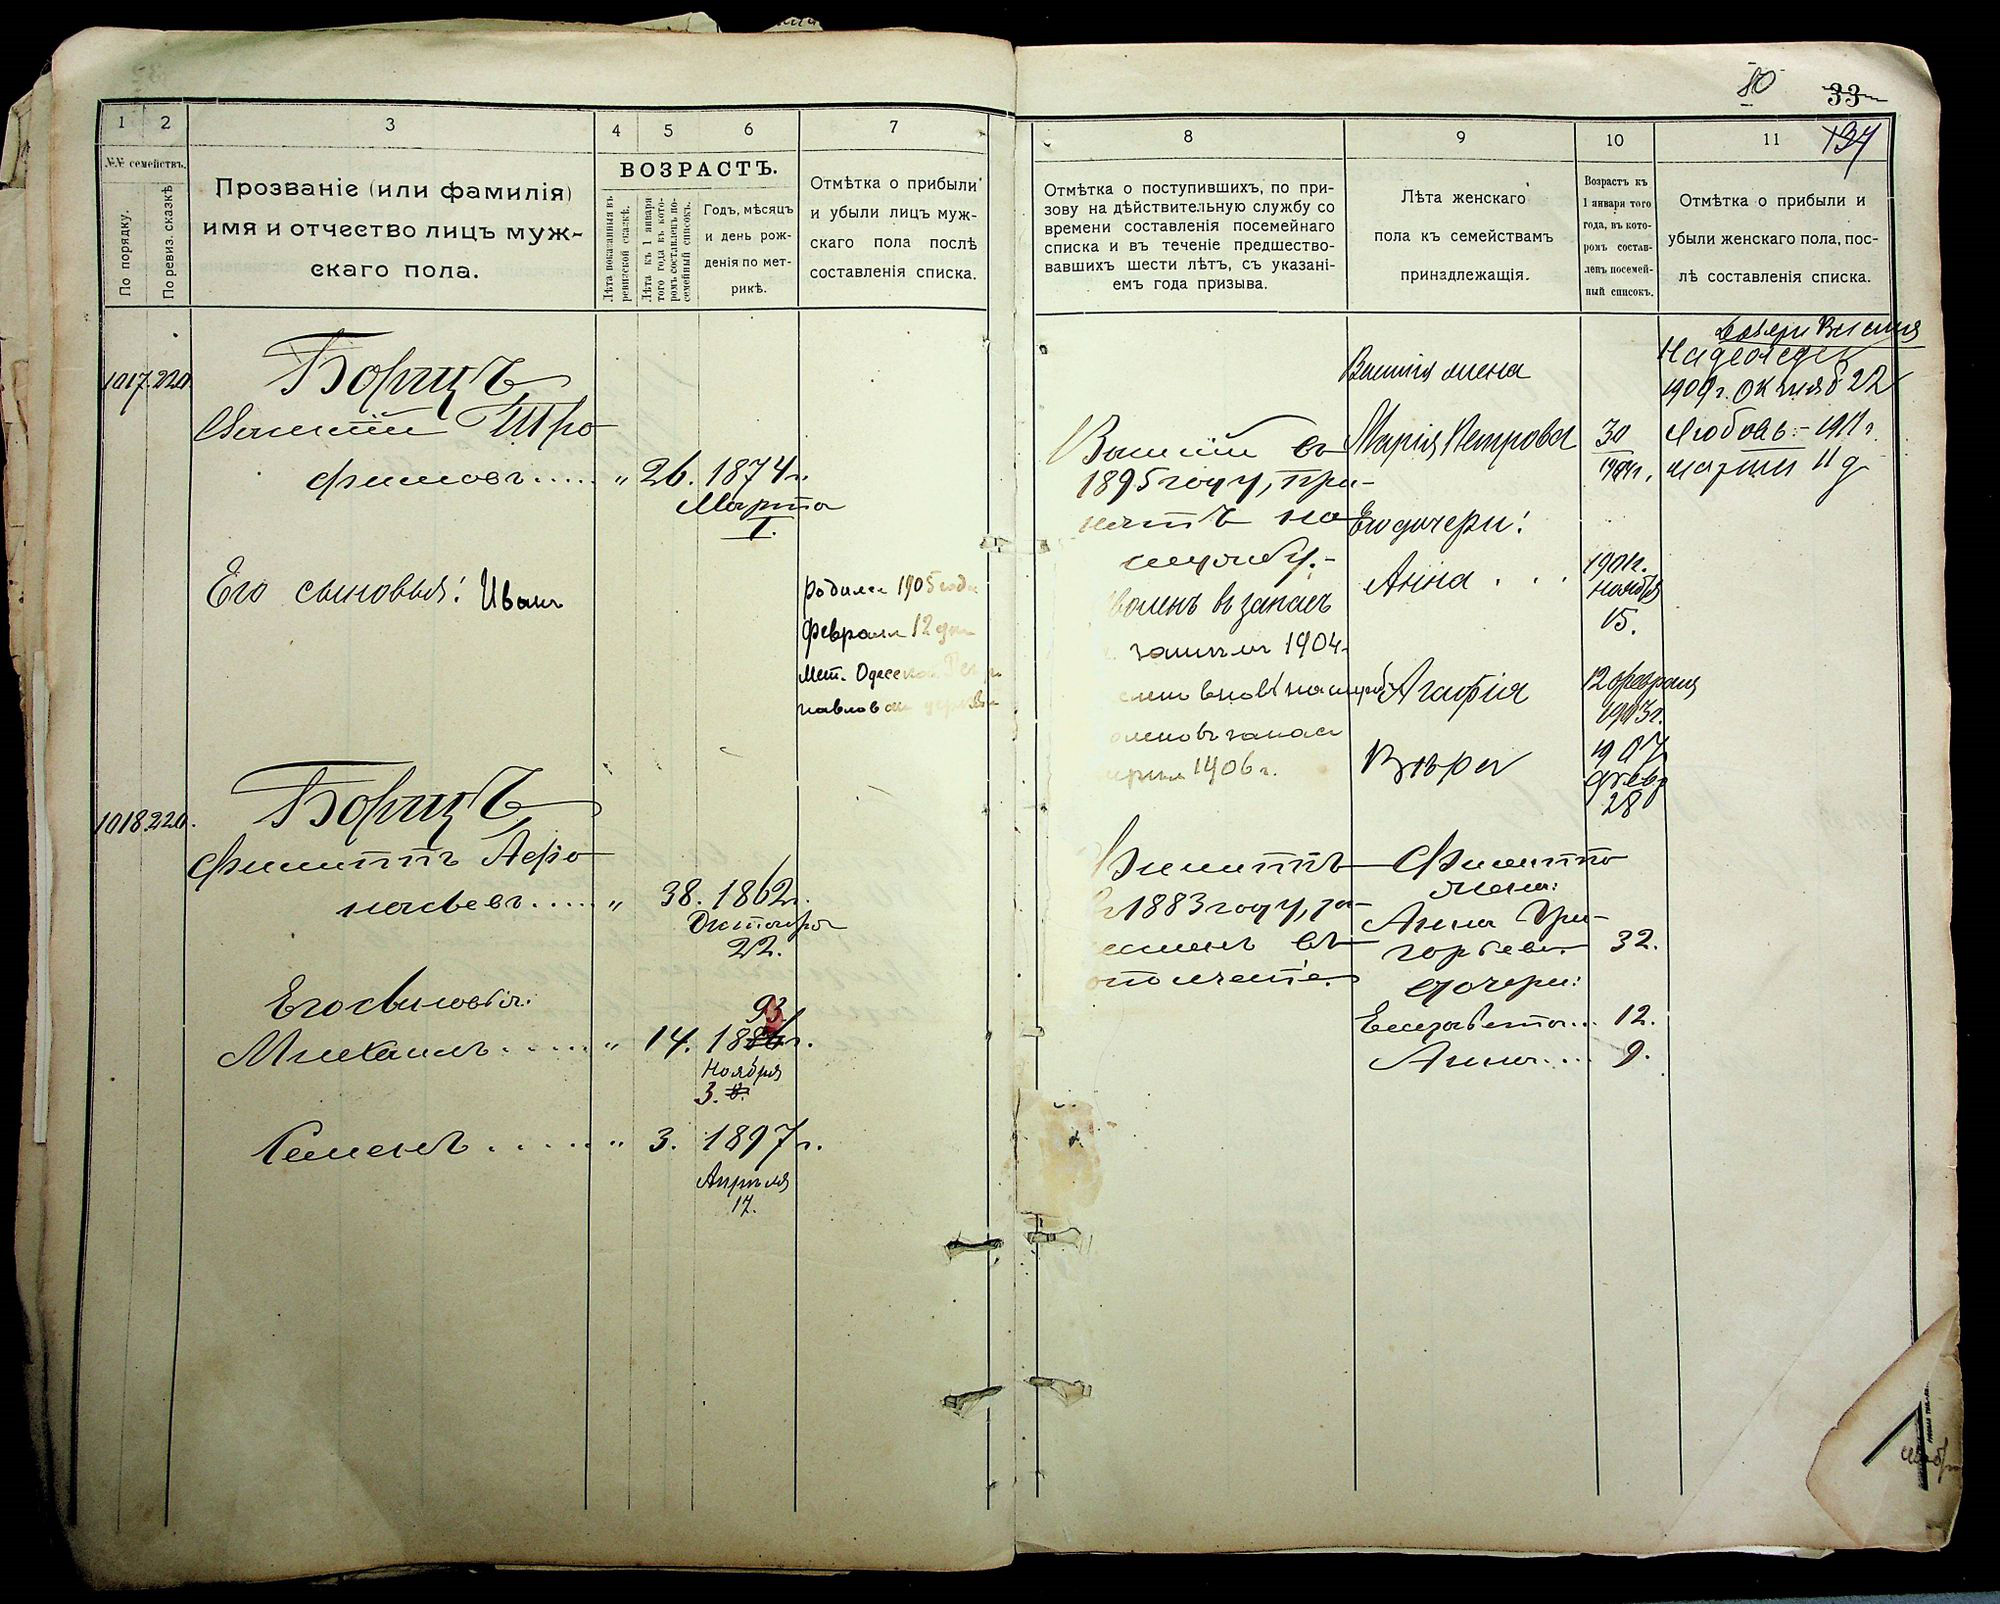 80
33
137
1 2 3 4 5 6 7
№№ семействъ.
По порядку.
По ревиз. сказкѣ
Прозваніе (или фамилія)
имя и отчество лицъ муж-
скаго пола.
ВОЗРАСТЪ.
Лѣта показанныя въ
ревизской сказкѣ.
Лѣта къ 1 января
того года въ кото-
ромъ составленъ по-
семейный списокъ.
Годъ, мѣсяцъ
и день рож-
денія по мет-
рикѣ.
Отмѣтка о прибыли
и убыли лицъ муж-
скаго пола послѣ
составленія списка.
1017. 220
Борщъ
Василій Тро
фимовъ..... „ 26. 1874 г.
Марта
1.
Его сыновья: Иванъ
родился 1905 года
февраля 12 дня
Мет. Одесской
1018. 220.
Борщъ
Филиппъ Афо
насьевъ..... „ 38. 1862 г.
Октября
22.
Его сыновья:
93
Михаилъ..... „ 14. 1886 г.
Ноября
3. 8.
Семенъ..... „ 3. 1897 г.
Апрѣля
17.
8 9 10 11
Отмѣтка о поступившихъ, по при-
зову на дѣйствительную службу со
времени составленія посемейнаго
списка и въ теченіе предшество-
вавшихъ шести лѣтъ, съ указані-
емъ года призыва.
Лѣта женскаго
пола къ семействамъ
принадлежащія.
Возрастъ къ
1 января того
года, въ кото-
ромъ состав-
ленъ посемей-
ный списокъ.
Отмѣтка о прибыли и
убыли женскаго пола, пос-
лѣ составленія списка.
Василій въ
1895 году, при-
нятъ на
службу.-
воленъ въ запасъ
1904.
1906 г.
Василія жена
Марія Петрова 30
1904 г.
Его дочери:
Анна . . . 1901 г.
ноября
15.
Агафія 12 февраля
1903 г.
Вѣра 1907
февр
28
дочери Василія
Надежда
1909 г. Октяб. 22
Любовь - 1911 г.
марта 11 д
Филиппъ
въ 1883 году, за-
численъ въ
ополченіе.
Филиппа
жена:
Анна Гри-
горьева. 32.
дочери:
Елизавета... 12.
Анна.... 9.